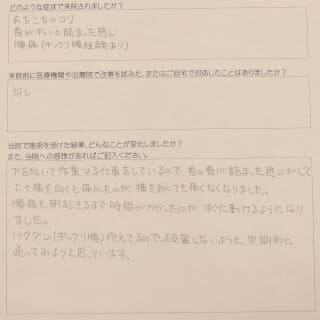 どのような症状で来院されましたか？
あちこちのコリ
首がギュッと詰まった感じ
腰痛（ギックリ腰経験あり）
来院前に医療機関や治療院で改善を試みた、またはご自宅で対応したことはありましたか？
なし
当院で施術を受けた結果、どんなことが変化しましたか？
また、当院への感想があればご記入ください。
下を向いて作業する仕事をしているので、首の骨が詰まった感じがして
上や横を向くと痛かったのが 横を向いても痛くなくなりました。
腰痛も朝起きるまで時間がかかったのが すぐに動けるようになり
ました。
バクダン（ギックリ腰）抱えてるので、破裂しないように、定期的に
通ってみようと思っています。